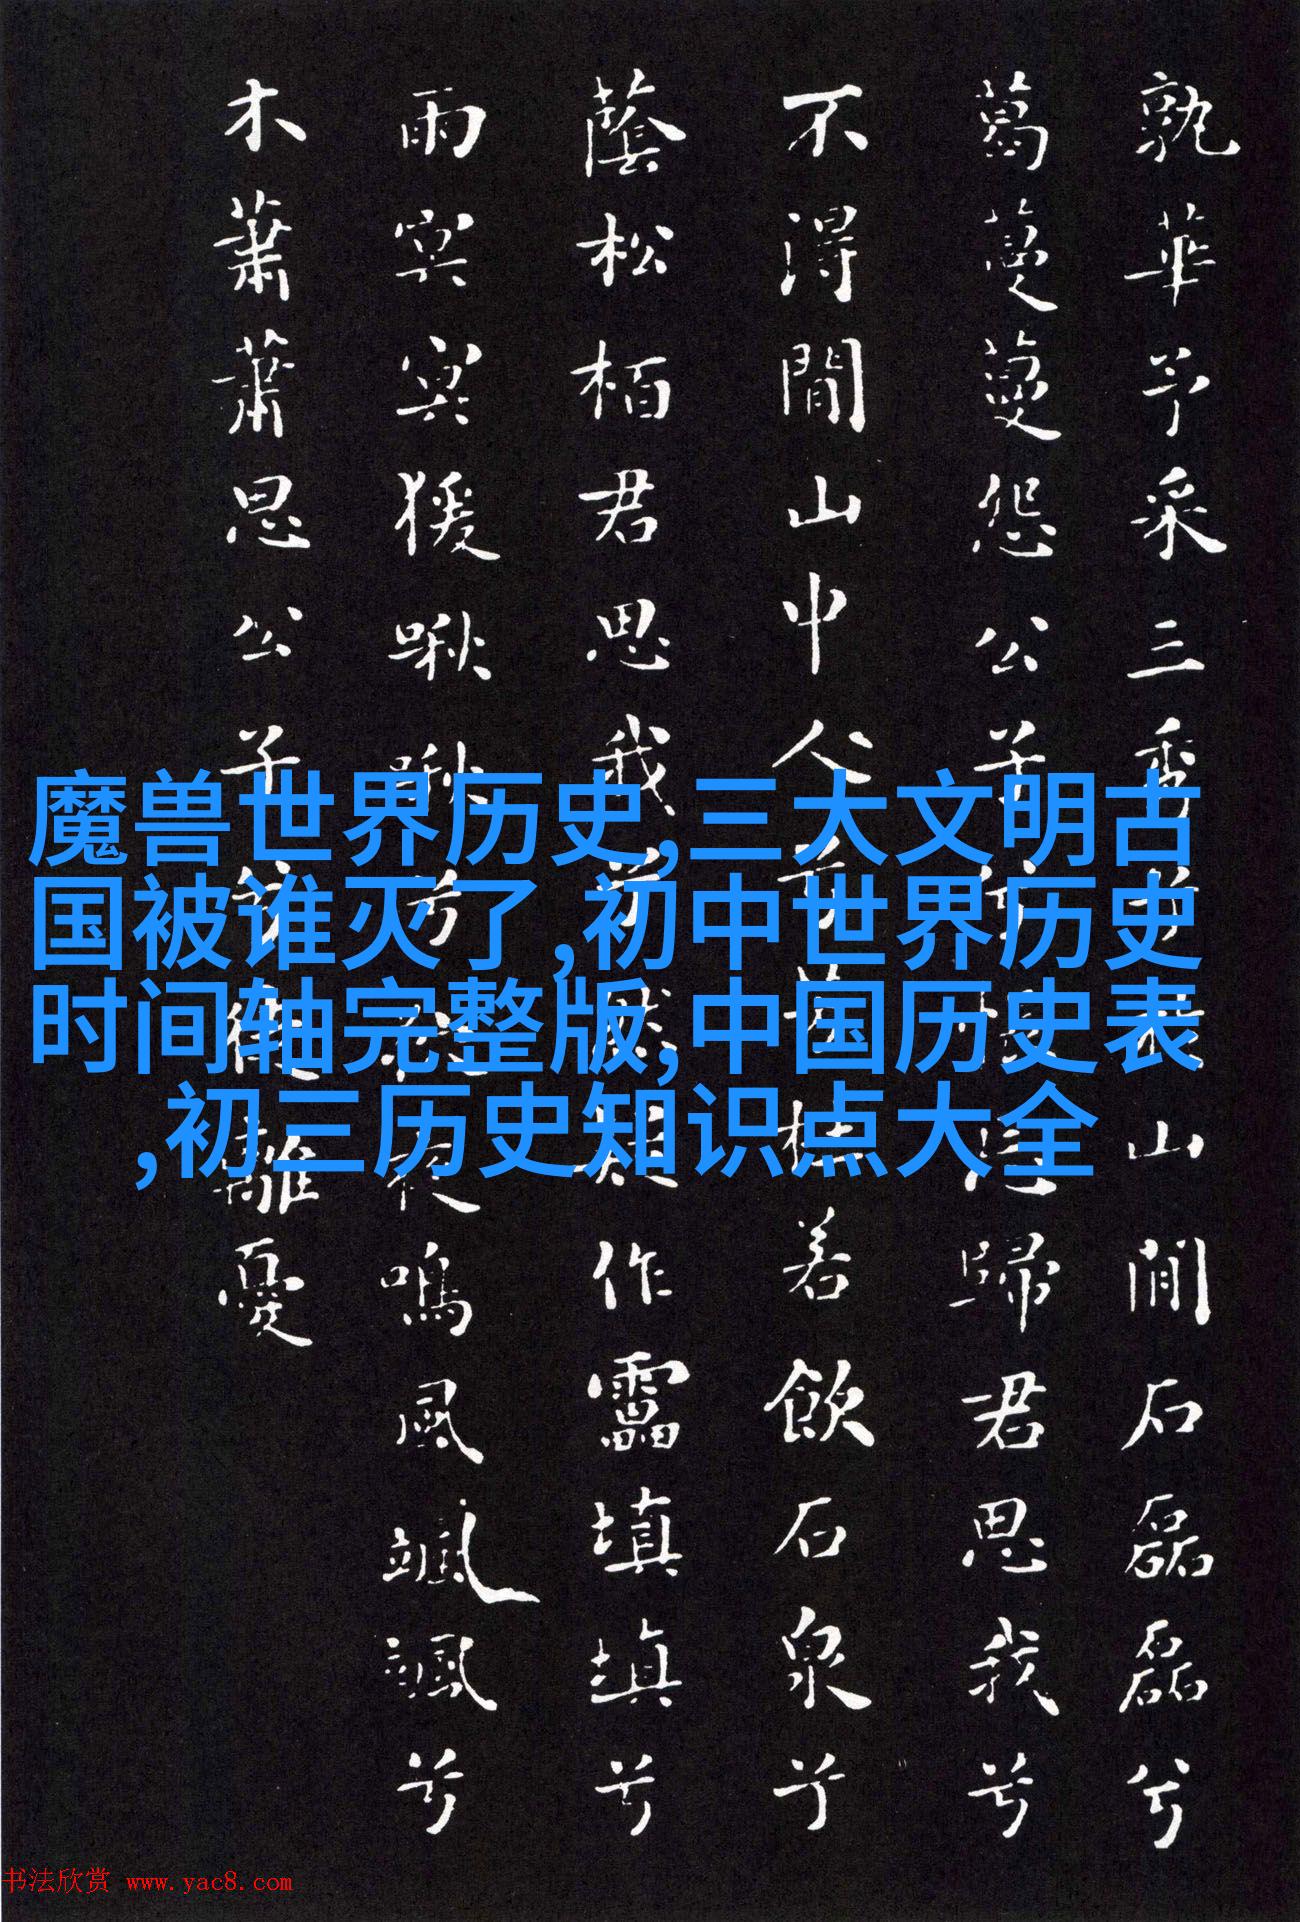 孰華予采三秀兮於山間石磊磊兮
葛蔓蔓怨公子兮悵忘歸君思我兮
不得間山中人兮芳杜若飲石泉兮
蔭松栢君思我兮然疑作靁填填兮
雨冥冥猨啾啾兮狖夜鳴風颯颯兮
木蕭蕭思公子兮徒離憂
魔兽世界历史,三大文明古
国被谁灭了,初中世界历史
时间轴完整版,中国历史表
,初三历史知识点大全
书法欣赏 www.yac8.com